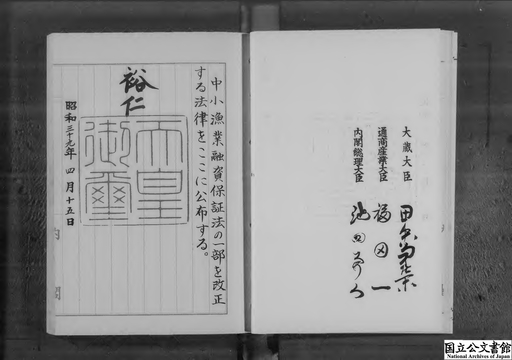 大蔵大臣 田中角榮
通商産業大臣 福田一
内閣総理大臣 池田勇人
中小漁業融資保証法の一部を改正
する法律をここに公布する。
裕仁
天皇
御璽
昭和三十九年四月十五日
内閣
国立公文書館
National Archives of Japan